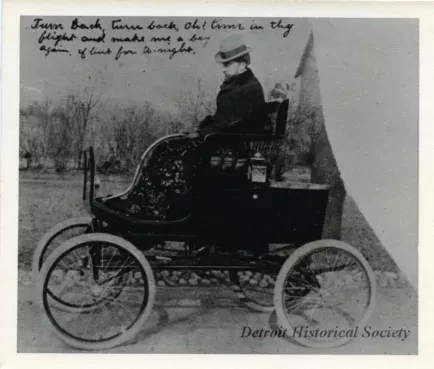 Turn Back, turn back, Oh! time in thy
flight and make me a boy
again, if but for to-night.
Detroit Historical Society